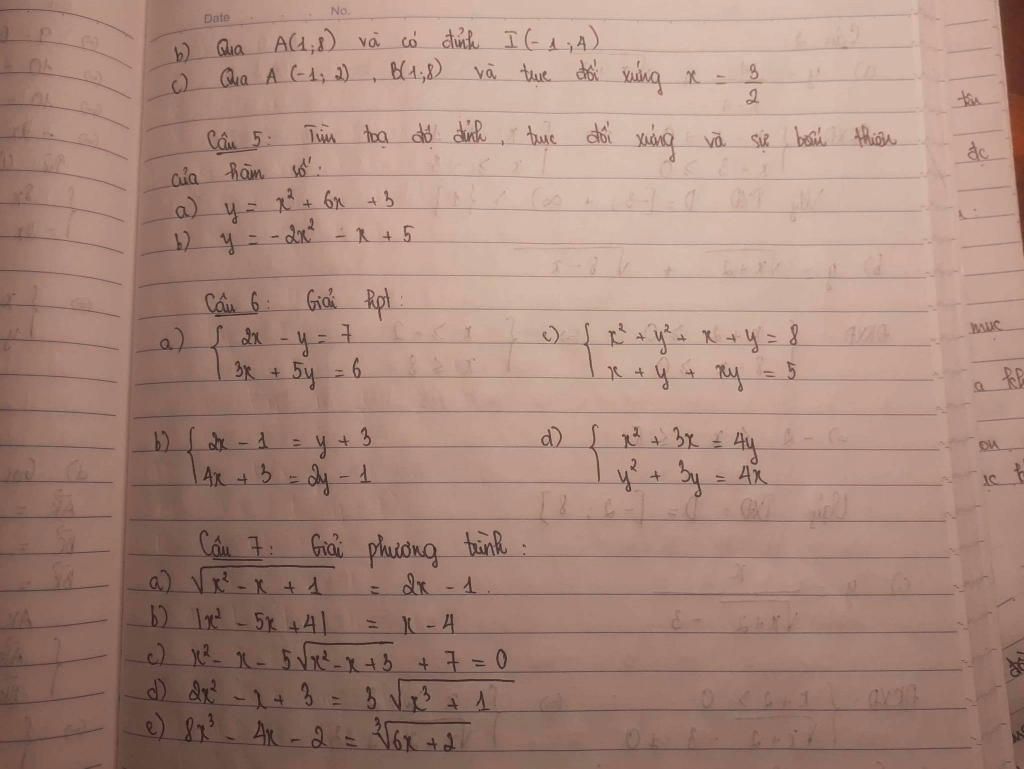 Date No.
b) Qua A(1;8) và có đỉnh I(-1;4)
c) Qua A(-1;2), B(1;8) và trục đối xứng x = 3/2
Câu 5: Tìm toạ độ đỉnh, trục đối xứng và sự biến thiên
của hàm số:
a) y = x² + 6x + 3
b) y = -2x² - x + 5
Câu 6: Giải hpt:
a) { 2x - y = 7
3x + 5y = 6
c) { x² + y² + x + y = 8
x + y + xy = 5
b) { 2x - 1 = y + 3
4x + 3 = 2y - 1
d) { x² + 3x = 4y
y² + 3y = 4x
Câu 7: Giải phương trình:
a) √(x² - x + 1) = 2x - 1.
b) |x² - 5x + 4| = x - 4
c) x² - x - 5√(x² - x + 3) + 7 = 0
d) 2x² - x + 3 = 3√(x³ + 1)
e) 8x³ - 4x - 2 = ∛(6x + 2)
đc
mục